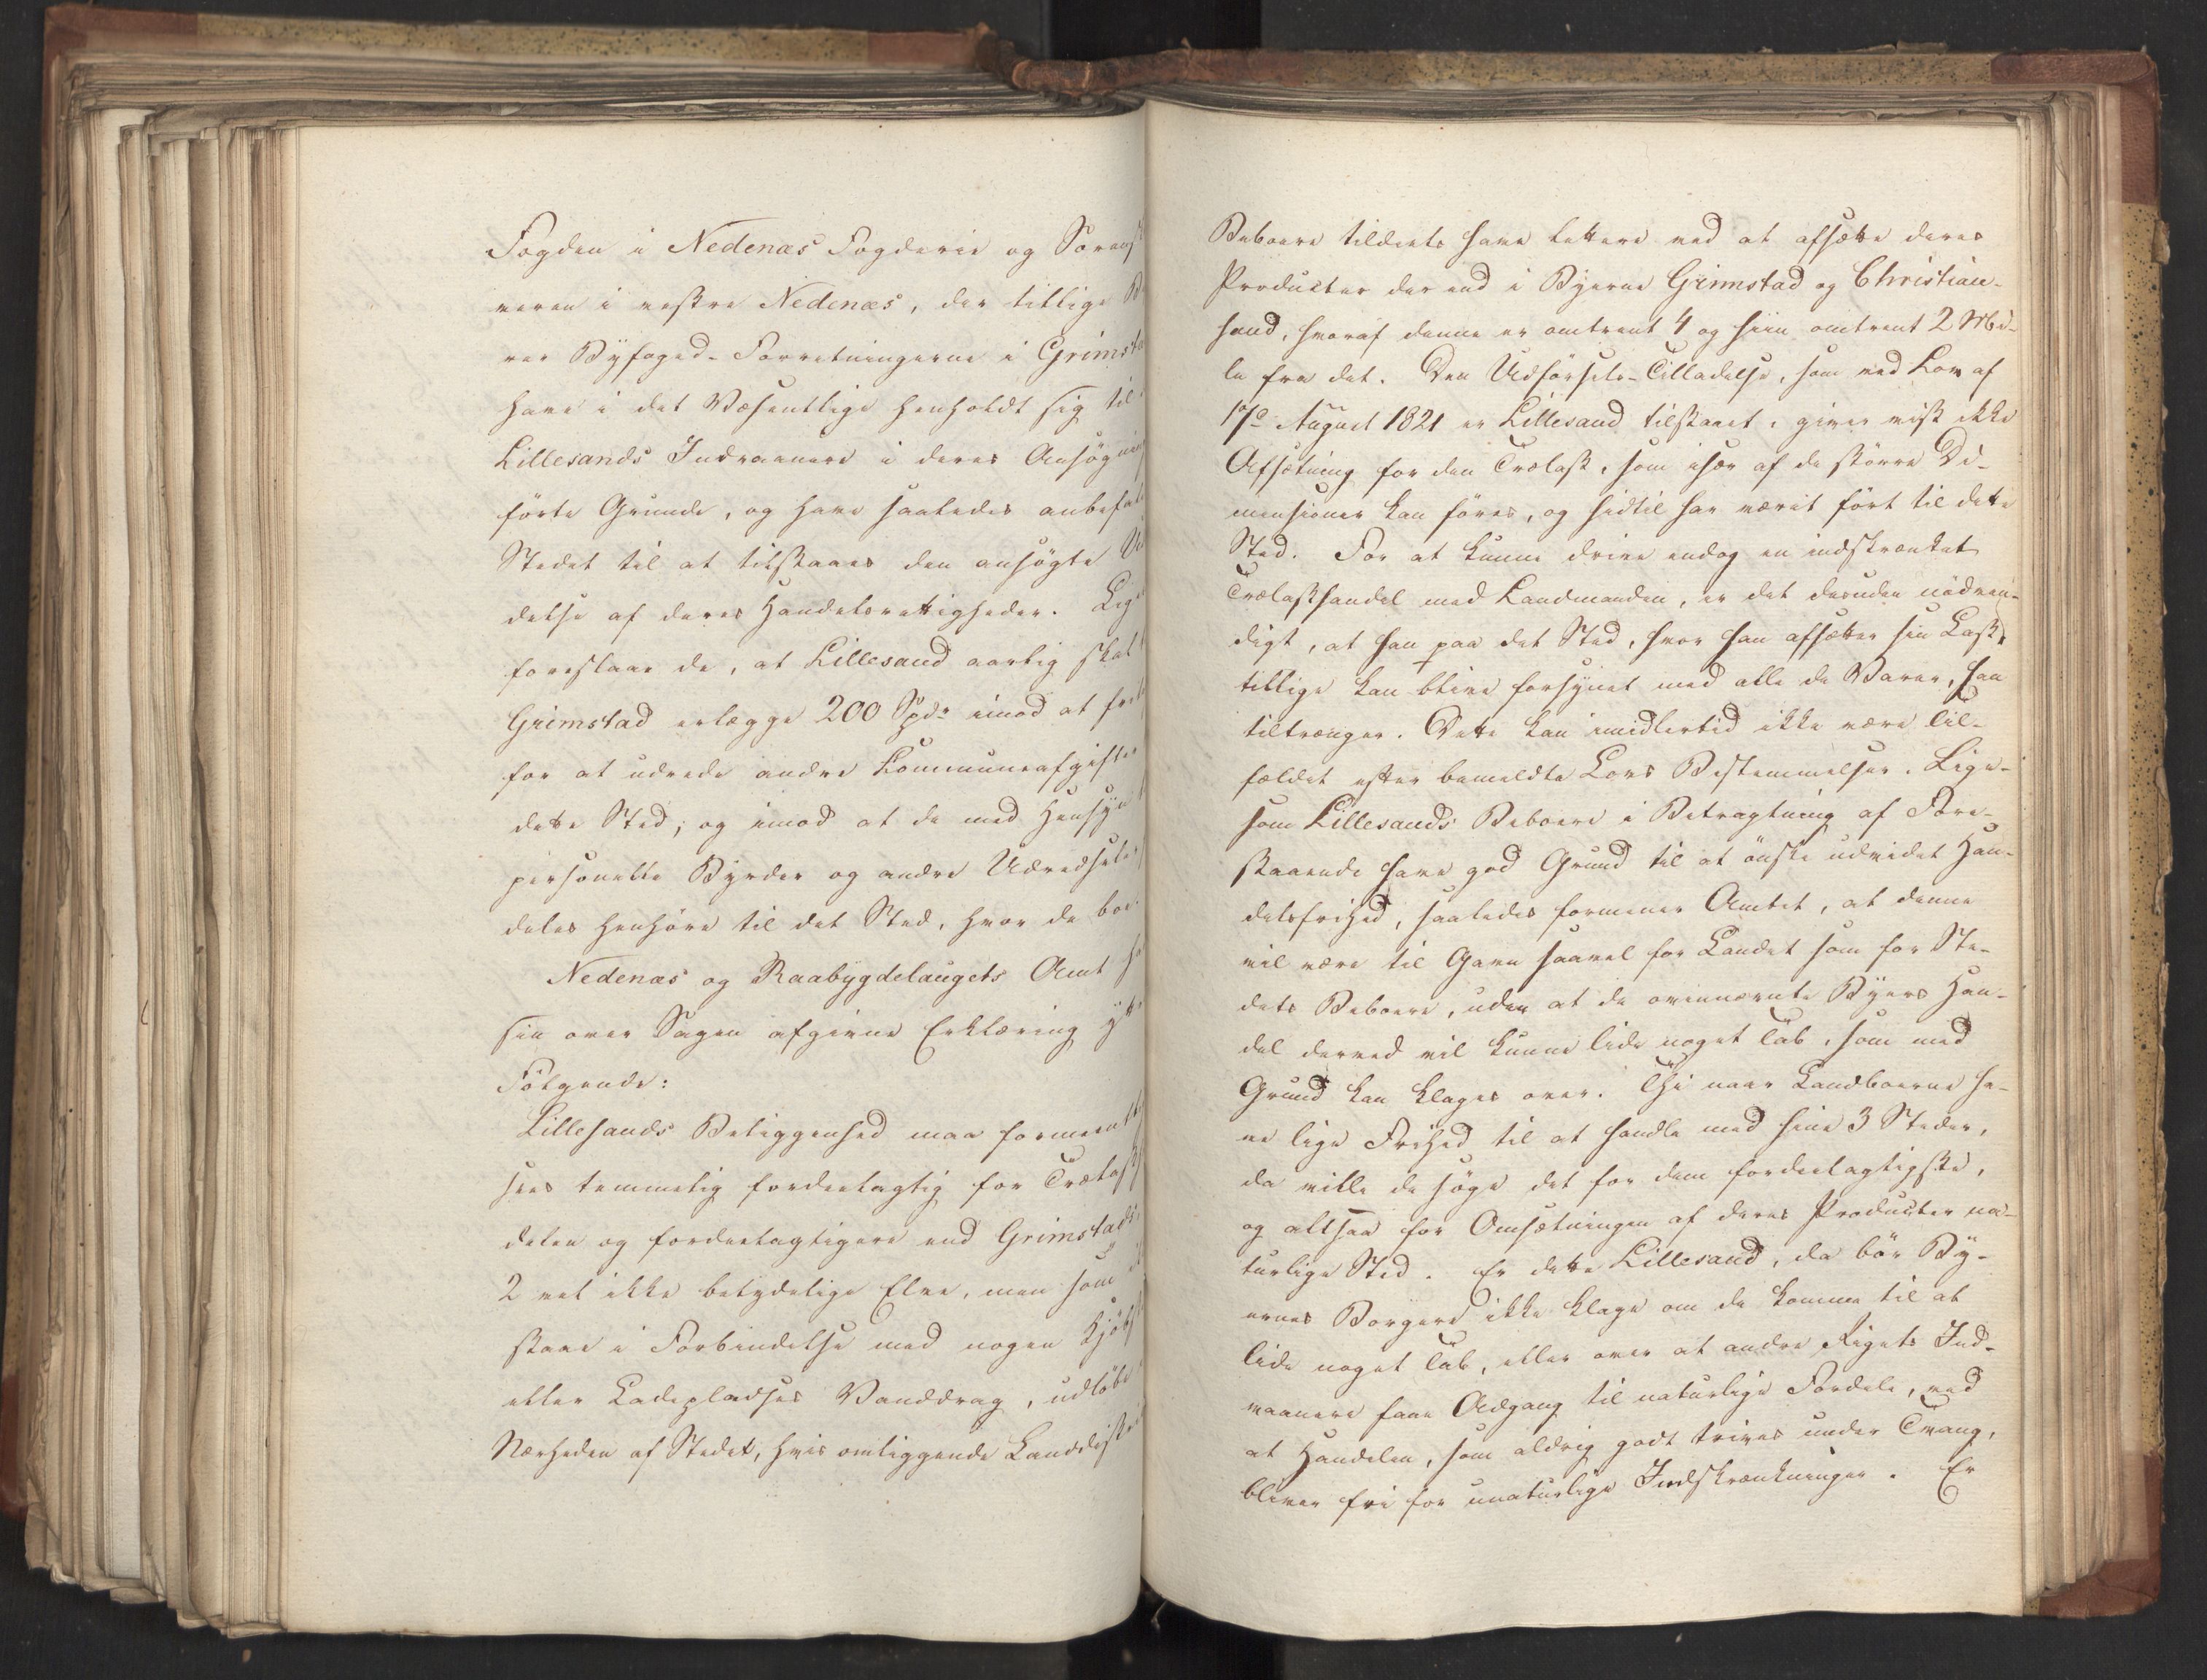 Fogden i Nedenæs Fogderie og Sorensk
veren i vestre Nedenæs, der tillige B
rer Byfoged-Forretningerne i Grimsta
have i det Væsentlige henholdt sig til
Lillesands Indvaanere i deres Ansøgning
førte Grunde, og have saaledes anbefal
Stedet til at tilstaaes den ansøgte U
delse af deres Handelsrettigheder. Lige
foreslaae de, at Lillesand aarlig skal
Grimstad erlægge 200 Spdr imod at frit
for at udrede andre Kommuneafgifter
dette Sted; og imod at de med Hensyn
personelle Byrder og andre Udredsele
deles henhøre til det Sted, hvor de boe.
Nedenæs og Raabygdelaugets Amt ha
sin over Sagen afgivne Erklæring ytt
Følgende:
Lillesands Beliggenhed maa formeent
sees temmelig fordeelagtig for Trælasth
delen og fordeelagtigere end Grimstads,
2 vel ikke betydelige Elve, men som i
staae i Forbindelse med nogen Kjøbs
eller Ladepladses Vanddrag, udløbe
Nærheden af Stedet, hvis omliggende Landdistr
Beboere tildeels have lettere ved at afsætte deres
Producter der end i Byerne Grimstad og Christian-
sand, hvoraf denne er omtrent 4 og hiin omtrent 2 Mi-
le fra det. Den Udførsels-Tilladelse, som ved Lov af
17de August 1821 er Lillesand tilstaaet, giver vist ikke
Afsætning for den Trælast, som især af de større Di-
mensioner kan føres, og hidtil har været ført til dette
Sted. For at kunne drive endog en indskrænket
Trælasthandel med Landmanden, er det desuden nødven-
digt, at han paa det Sted, hvor han afsætter sin Last,
tillige kan blive forsynet med alle de Varer, han
tiltrænger. Dette kan imidlertid ikke være Til-
fældet efter bemeldte Lovs Bestemmelser. Lige-
som Lillesands Beboere i Betragtning af Fore-
staaende have god Grund til at ønske udvidet Han-
delsfrihed, saaledes formener Amtet, at denne
vil være til Gavn saavel for Landet som for Ste-
dets Beboere, uden at de ovennævnte Byers Han-
del derved vil kunne lide noget Tab, som med
Grund kan klages over. Thi naar Landboerne ha-
ve lige Frihed til at handle med hine 3 Steder,
da ville de søge det for dem fordeelagtigste,
og altsaa for Omsætningen af deres Producter na-
turlige Sted. Er dette Lillesand, da bør By-
ernes Borgere ikke klage om de komme til at
lide noget Tab, eller over at andre Rigets Ind-
vaanere faae Adgang til naturlige Fordele, ved
at Handelen, som aldrig godt trives under Tvang,
bliver fri for unaturlige Indskrænkninger. Er